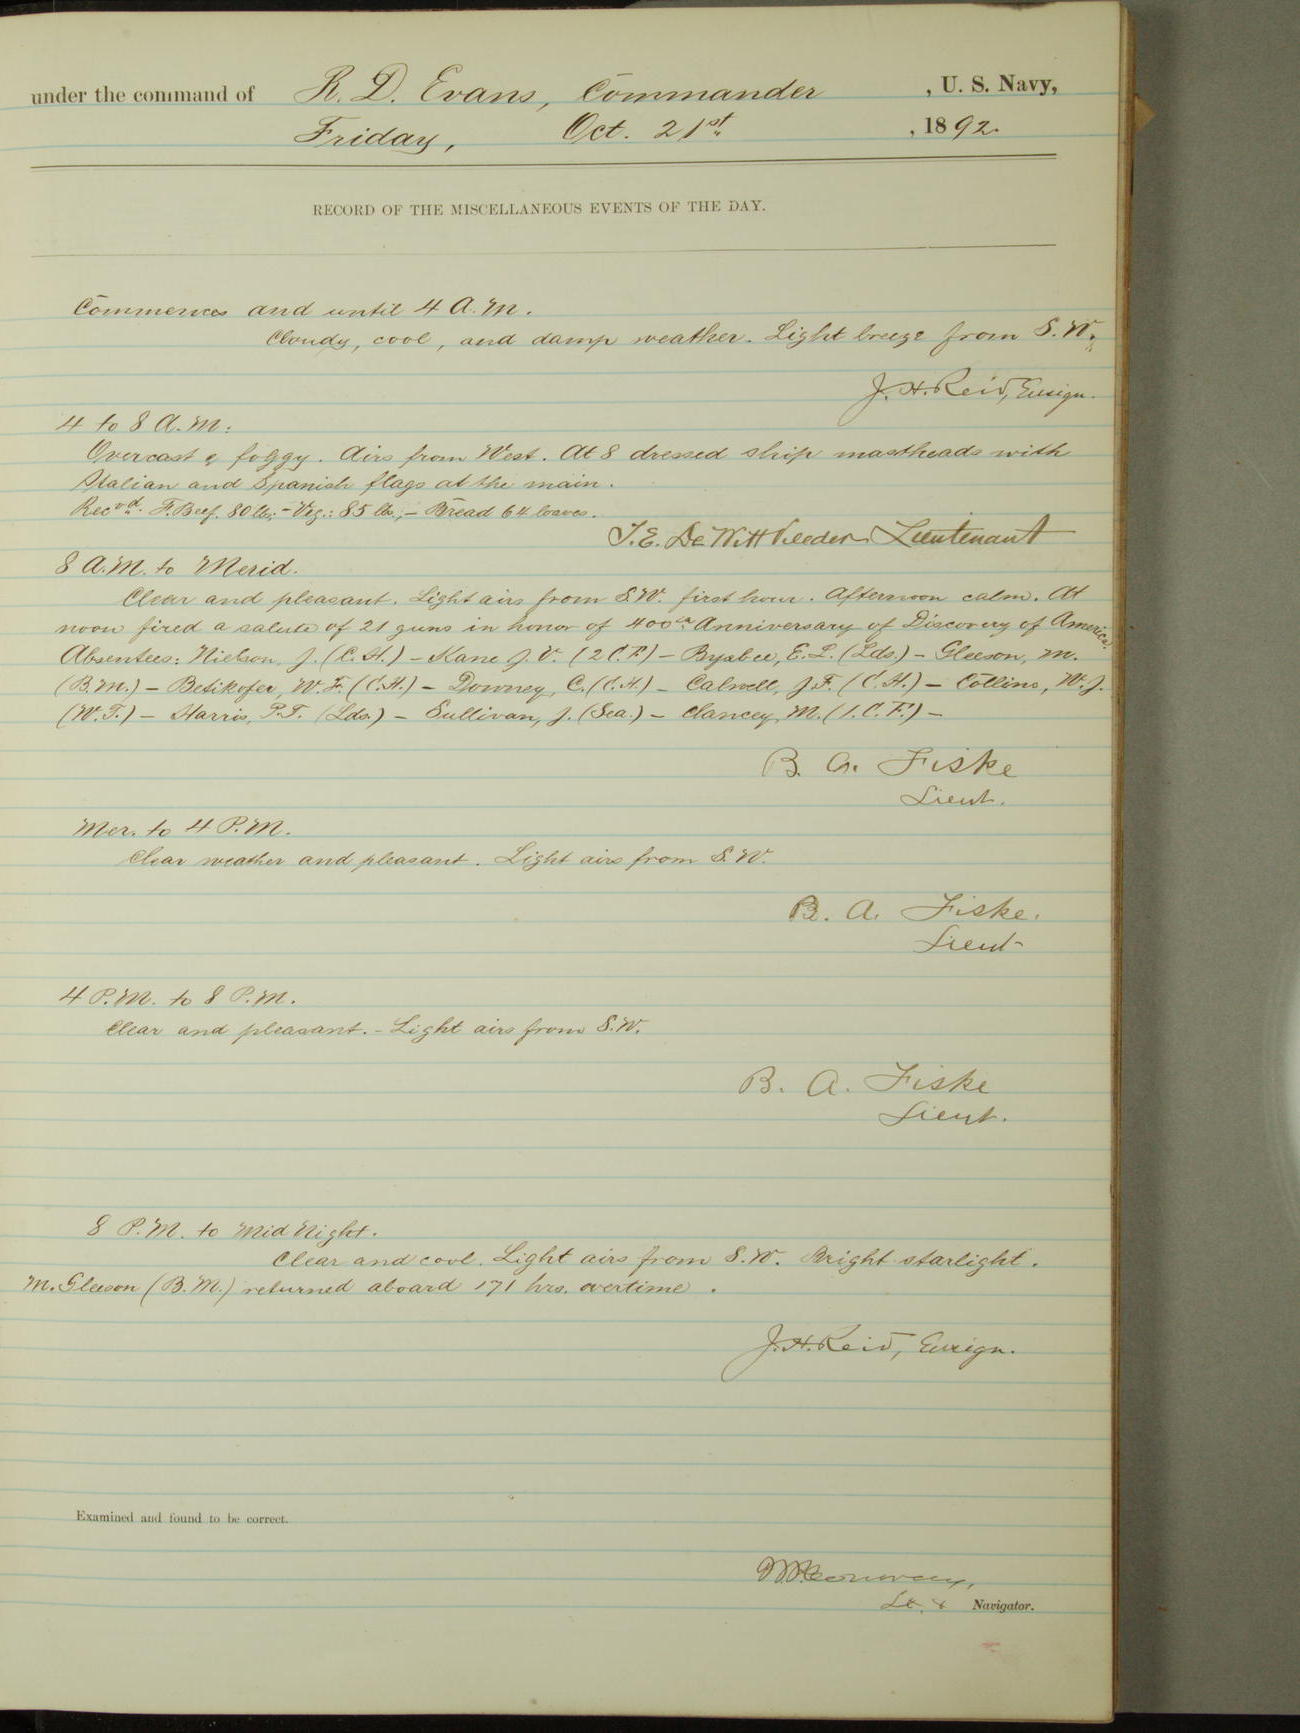 under the command of R. D. Evans, Commander , U. S. Navy,
Friday, Oct. 21st , 1892.
RECORD OF THE MISCELLANEOUS EVENTS OF THE DAY.
Commences and until 4 A.M.
Cloudy, cool, and damp weather. Light breeze from S.W.
J. H. Reid, Ensign.
4 to 8 A.M:
Overcast & foggy. Airs from West. At 8 dressed ship mastheads with
Italian and Spanish flags at the main.
Recvd. F. Beef. 80 lbs; - Veg.: 85 lbs; - Bread 64 loaves.
T. E. DeWitt Veeder Lieutenant
8 A.M. to Merid.
Clear and pleasant. Light airs from S.W. first hour. Afternoon calm. At
noon fired a salute of 21 guns in honor of 400th Anniversary of Discovery of America.
Absentees: Nielson, J. (C.H.) - Kane J. V. (2 C.F.) - Byxbee, E. L. (Lds.) - Gleeson, M.
(B.M.) - Betikofer, W. F. (C.H.) - Downey, C. (C.H.) - Calwell, J. F. (C.H.) - Collins, W. J.
(W.T.) - Harris, P. T. (Lds.) - Sullivan, J. (Sea.) - Clancey, M. (1. C. F.) -
B. A. Fiske
Lieut.
Mer. to 4 P.M.
Clear weather and pleasant. Light airs from S.W.
B. A. Fiske.
Lieut-
4 P.M. to 8 P.M.
Clear and pleasant. - Light airs from S.W.
B. A. Fiske
Lieut.
8 P.M. to Mid Night.
Clear and cool. Light airs from S.W. Bright starlight.
M. Gleeson (B.M.) returned aboard 171 hrs. overtime.
J. H. Reid, Ensign.
Examined and found to be correct.
Lt. & Navigator.